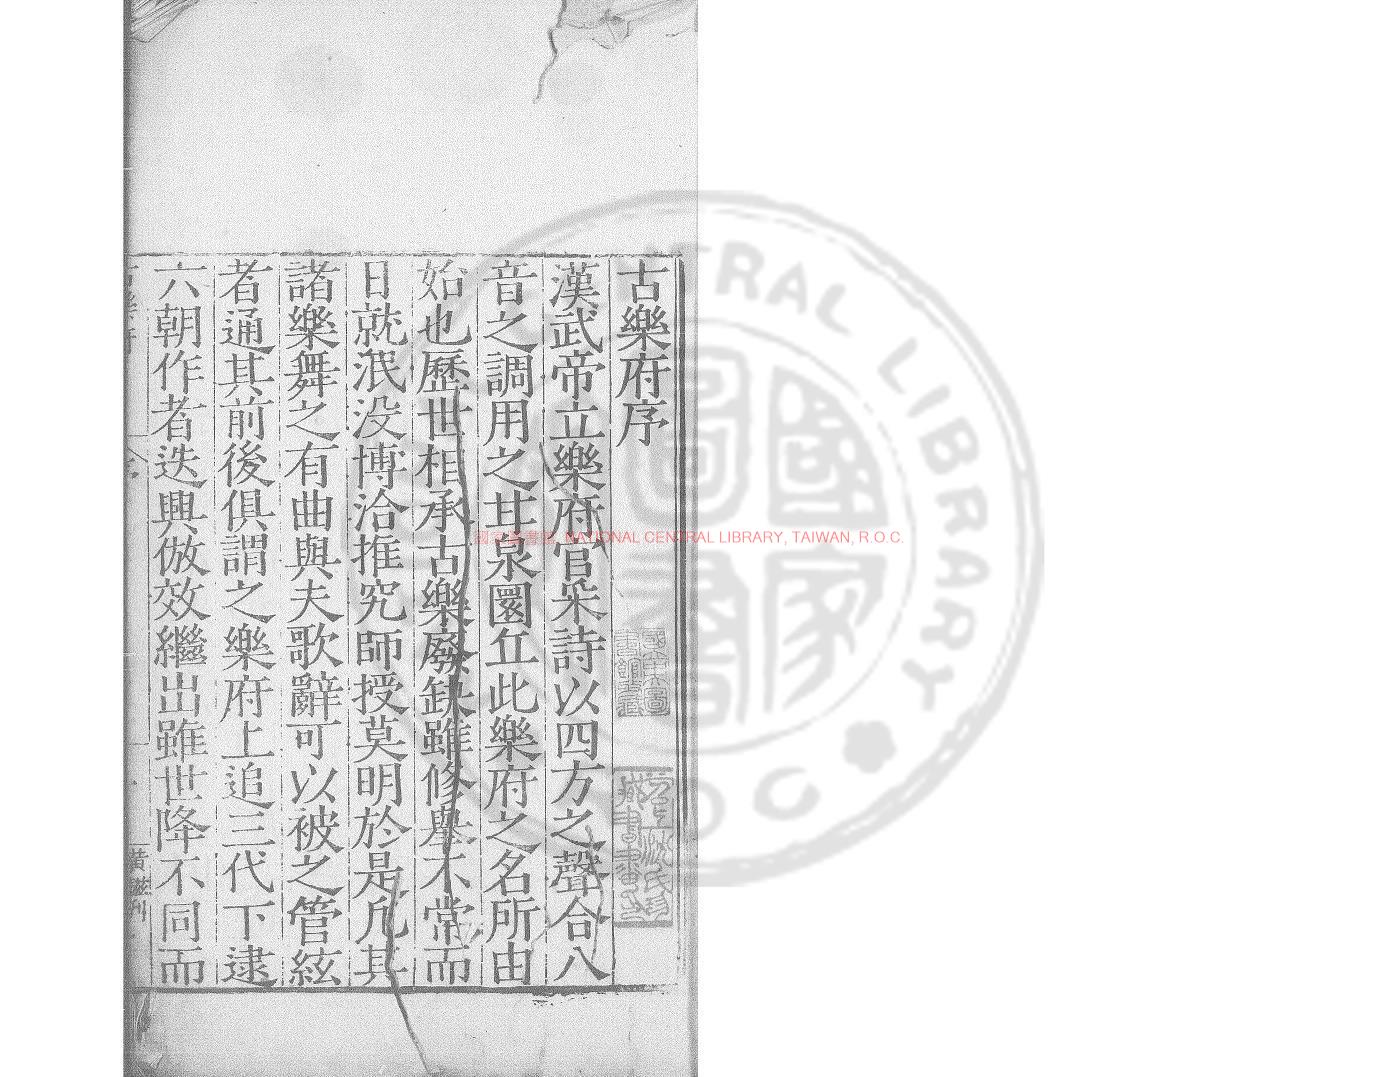 古樂府序
漢武帝立樂府官采詩以四方之聲合八
音之調用之甘泉圜丘此樂府之名所由
始也歷世相承古樂廢缺雖修舉不常而
日就泯没博洽推究師授莫明於是凡其
諸樂舞之有曲與夫歌辭可以被之管絃
者通其前後俱謂之樂府上追三代下逮
六朝作者迭興倣效繼出雖世降不同而
國家圖書館 NATIONAL CENTRAL LIBRARY, TAIWAN, R.O.C.
CENTRAL LIBRARY
國家圖書